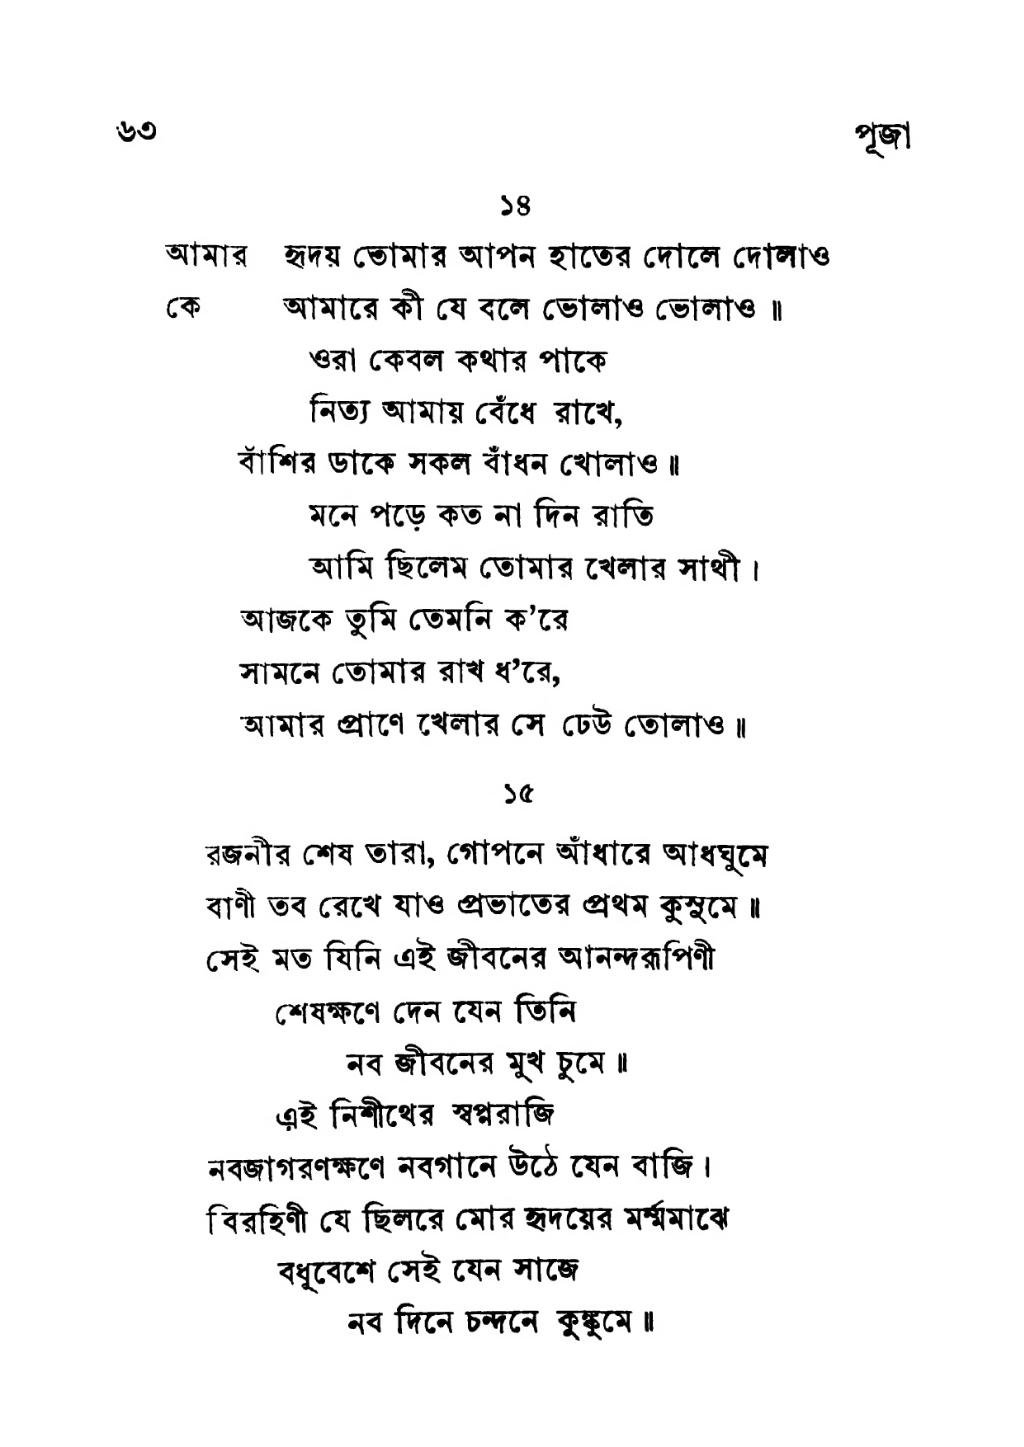 ৬৩ পূজা
১৪
আমার হৃদয় তোমার আপন হাতের দোলে দোলাও
কে আমারে কী যে বলে ভোলাও ভোলাও ॥
ওরা কেবল কথার পাকে
নিত্য আমায় বেঁধে রাখে,
বাঁশির ডাকে সকল বাঁধন খোলাও ॥
মনে পড়ে কত না দিন রাতি
আমি ছিলেম তোমার খেলার সাথী।
আজকে তুমি তেমনি ক’রে
সামনে তোমার রাখ ধ’রে,
আমার প্রাণে খেলার সে ঢেউ তোলাও ॥
১৫
রজনীর শেষ তারা, গোপনে আঁধারে আধঘুমে
বাণী তব রেখে যাও প্রভাতের প্রথম কুসুমে ॥
সেই মত যিনি এই জীবনের আনন্দরূপিণী
শেষক্ষণে দেন যেন তিনি
নব জীবনের মুখ চুমে ॥
এই নিশীথের স্বপ্নরাজি
নবজাগরণক্ষণে নবগানে উঠে যেন বাজি।
বিরহিণী যে ছিলরে মোর হৃদয়ের মর্ম্মমাঝে
বধূবেশে সেই যেন সাজে
নব দিনে চন্দনে কুঙ্কুমে ॥